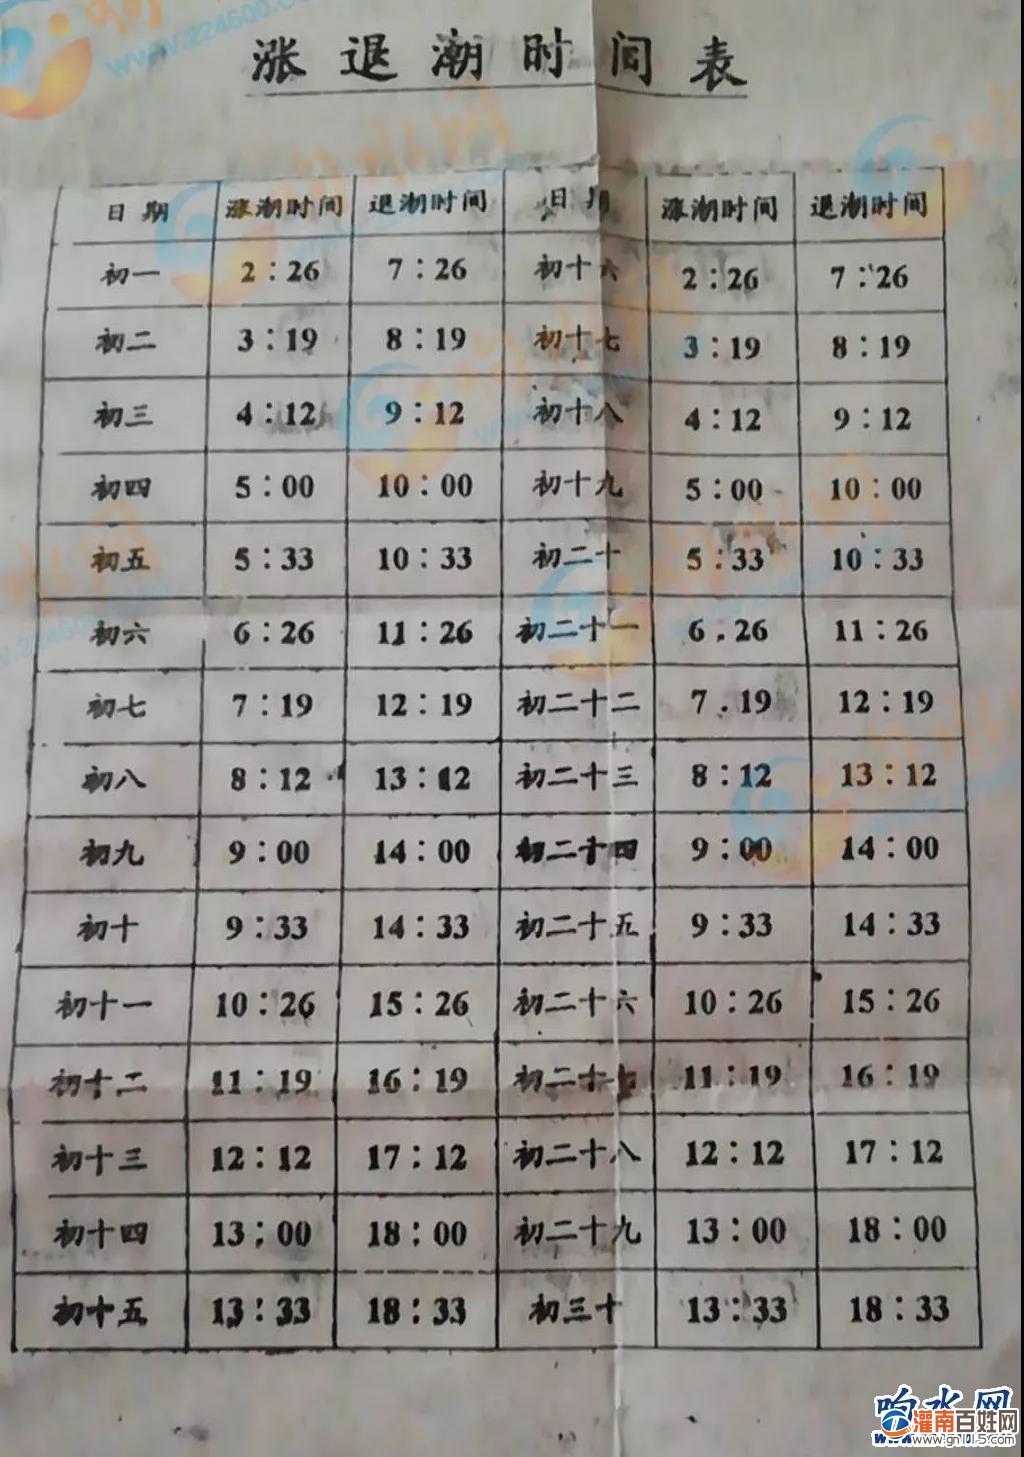 涨退潮时间表
日期 涨潮时间 退潮时间 日期 涨潮时间 退潮时间
初一 2:26 7:26 初十六 2:26 7:26
初二 3:19 8:19 初十七 3:19 8:19
初三 4:12 9:12 初十八 4:12 9:12
初四 5:00 10:00 初十九 5:00 10:00
初五 5:33 10:33 初二十 5:33 10:33
初六 6:26 11:26 初二十一 6.26 11:26
初七 7:19 12:19 初二十二 7.19 12:19
初八 8:12 13:12 初二十三 8:12 13:12
初九 9:00 14:00 初二十四 9:00 14:00
初十 9:33 14:33 初二十五 9:33 14:33
初十一 10:26 15:26 初二十六 10:26 15:26
初十二 11:19 16:19 初二十七 11:19 16:19
初十三 12:12 17:12 初二十八 12:12 17:12
初十四 13:00 18:00 初二十九 13:00 18:00
初十五 13:33 18:33 初三十 13:33 18:33
响水网
灌南百姓网
www.gn1115.com